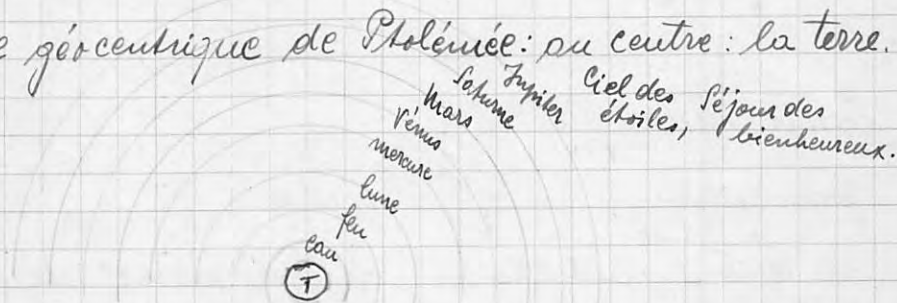 e géocentrique de Ptolémée: au centre: la terre.
Ciel des étoiles,
Séjour des bienheureux.
Jupiter
Saturne
Mars
Vénus
mercure
lune
feu
eau
T